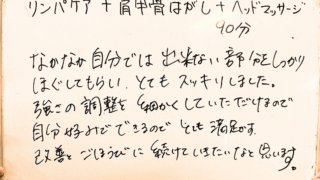 リンパケア + 肩甲骨はがし + ヘッドマッサージ
90分
なかなか自分では出来ない部分をしっかり
ほぐしてもらい、とてもスッキリしました。
強さの調整を細かくしていただけるので
自分好みでできるのでとても満足です。
改善とごほうびに続けていきたいなと思います。